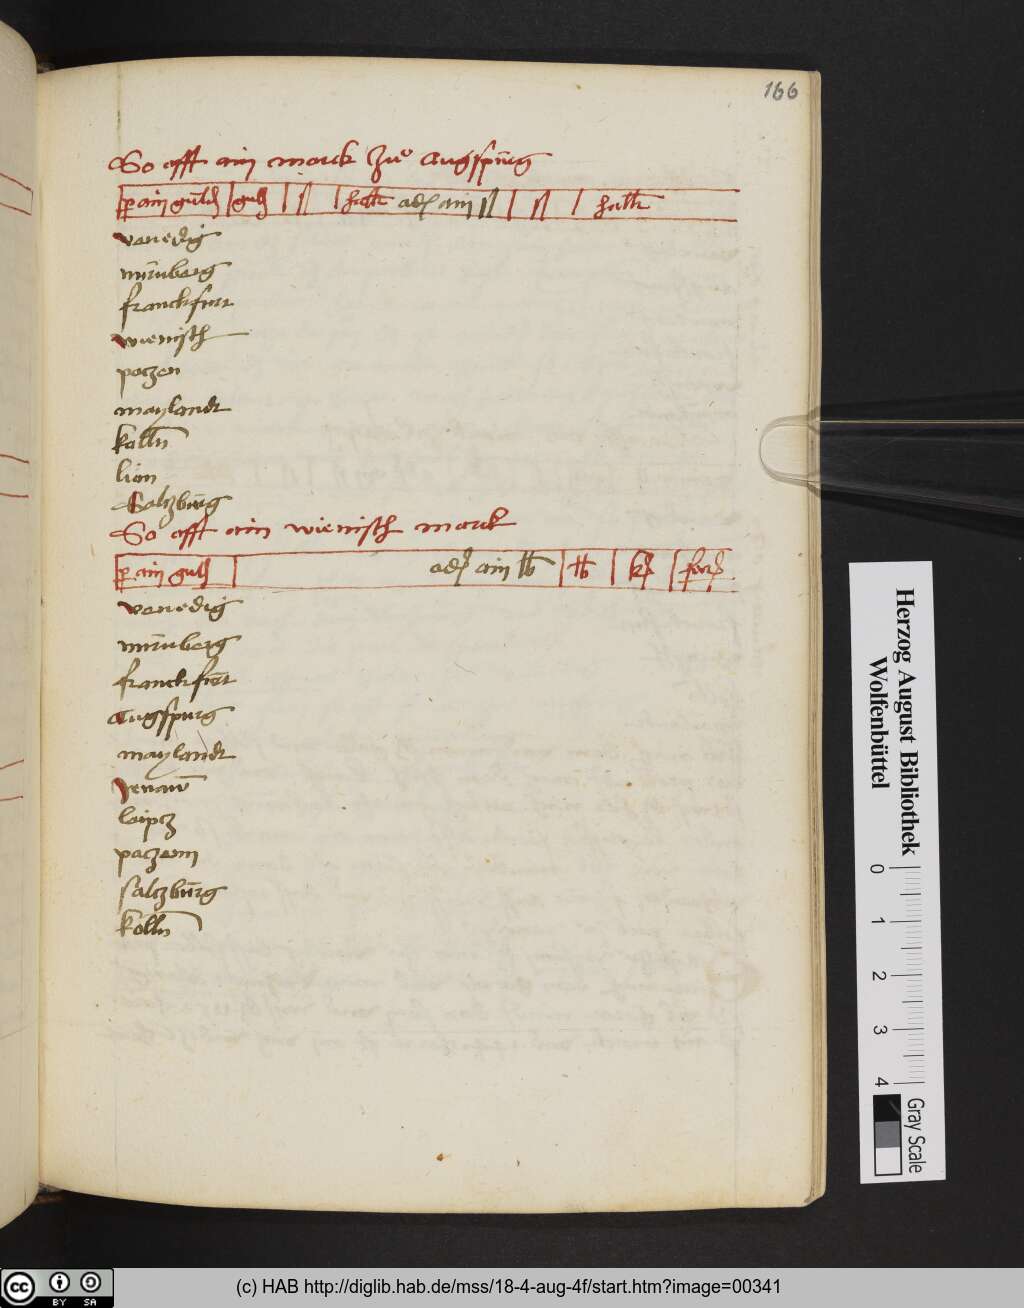 166
So offt ain marck zuo augspurg
p ain guld guld ß hallr oder ain ß ß hallr
venedig
nürnberg
franckfurt
wienisch
poczen
maylandt
kolln
lion
Salczburg
So offt ain wienisch marck
p ain guld oder ain lb lb
venedig
nürnberg
franckfurt
augspurg
maylandt
leipcz
poczenn
salczburg
kolln
Herzog August Bibliothek
Wolfenbüttel
0 1 2 3 4
Gray Scale
cc BY SA
(c) HAB http://diglib.hab.de/mss/18-4-aug-4f/start.htm?image=00341